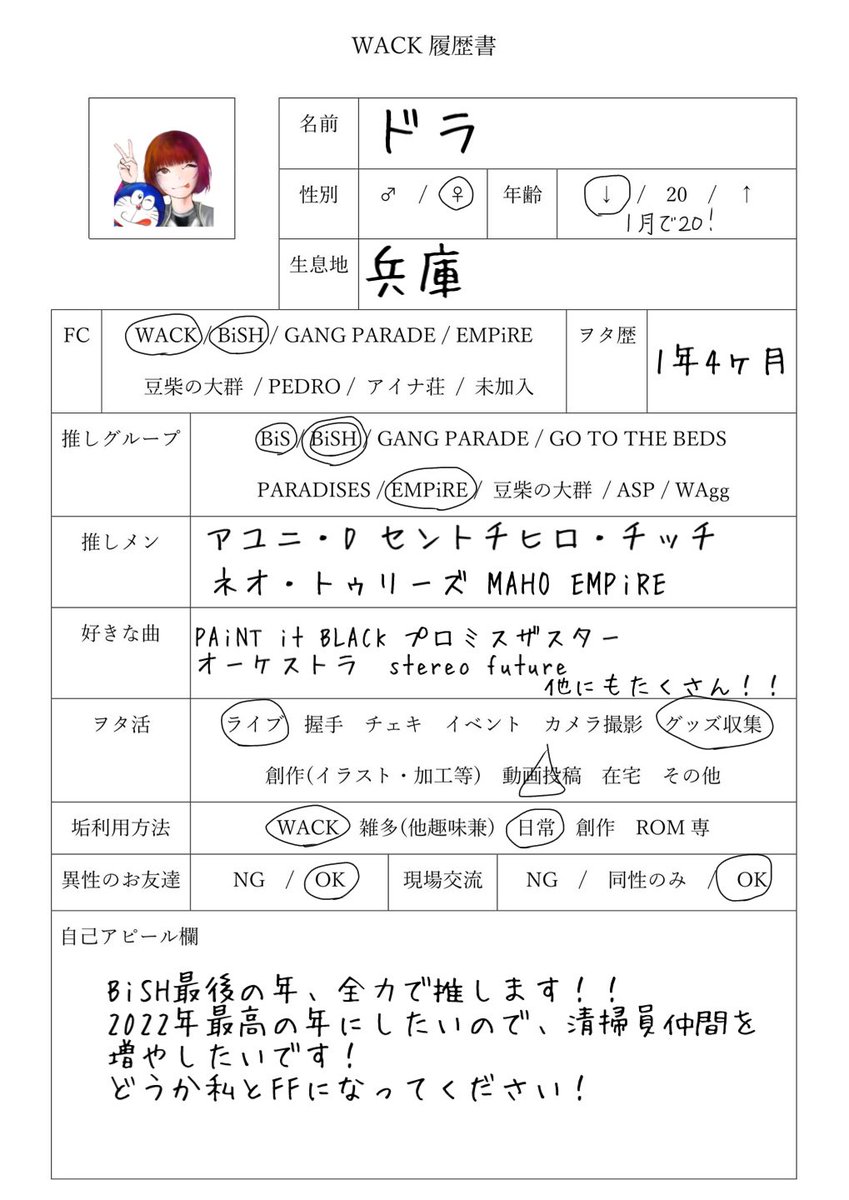 WACK 履歴書
名前 ドラ
性別 ♂ / ♀ 年齢 ↓ / 20 / ↑
1月で20!
生息地 兵庫
FC WACK / BiSH / GANG PARADE / EMPiRE
豆柴の大群 / PEDRO / アイナ荘 / 未加入
ヲタ歴 1年4ヶ月
推しグループ BiS / BiSH / GANG PARADE / GO TO THE BEDS
PARADISES / EMPiRE / 豆柴の大群 / ASP / WAgg
推しメン アユニ・D セントチヒロ・チッチ
ネオ・トゥリーズ MAHO EMPiRE
好きな曲 PAiNT it BLACK プロミスザスター
オーケストラ stereo future
他にもたくさん!!
ヲタ活 ライブ 握手 チェキ イベント カメラ撮影 グッズ収集
創作(イラスト・加工等) 動画投稿 在宅 その他
垢利用方法 WACK 雑多(他趣味兼) 日常 創作 ROM専
異性のお友達 NG / OK 現場交流 NG / 同性のみ / OK
自己アピール欄
BiSH最後の年、全力で推します!!
2022年最高の年にしたいので、清掃員仲間を
増やしたいです!
どうか私とFFになってください!